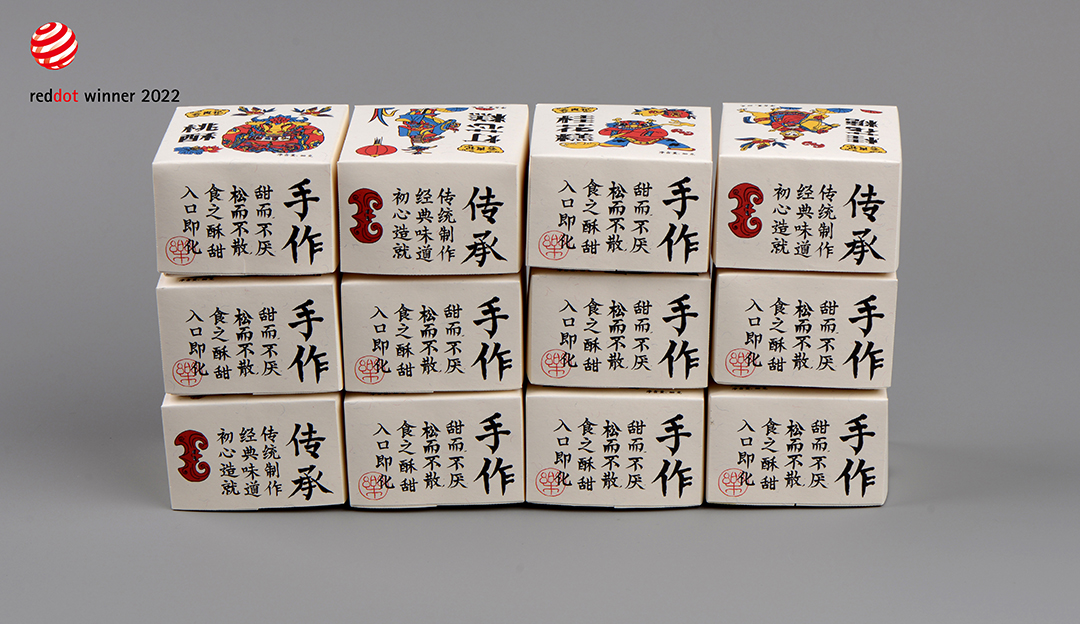 reddot winner 2022
桃酥
灯芯糕
桂花糕
手作
甜而不厌
松而不散
食之酥甜
入口即化
传承
传统制作
经典味道
初心造就
手作
甜而不厌
松而不散
食之酥甜
入口即化
传承
传统制作
经典味道
初心造就
手作
甜而不厌
松而不散
食之酥甜
入口即化
手作
甜而不厌
松而不散
食之酥甜
入口即化
手作
甜而不厌
松而不散
食之酥甜
入口即化
手作
甜而不厌
松而不散
食之酥甜
入口即化
传承
传统制作
经典味道
初心造就
手作
甜而不厌
松而不散
食之酥甜
入口即化
手作
甜而不厌
松而不散
食之酥甜
入口即化
手作
甜而不厌
松而不散
食之酥甜
入口即化